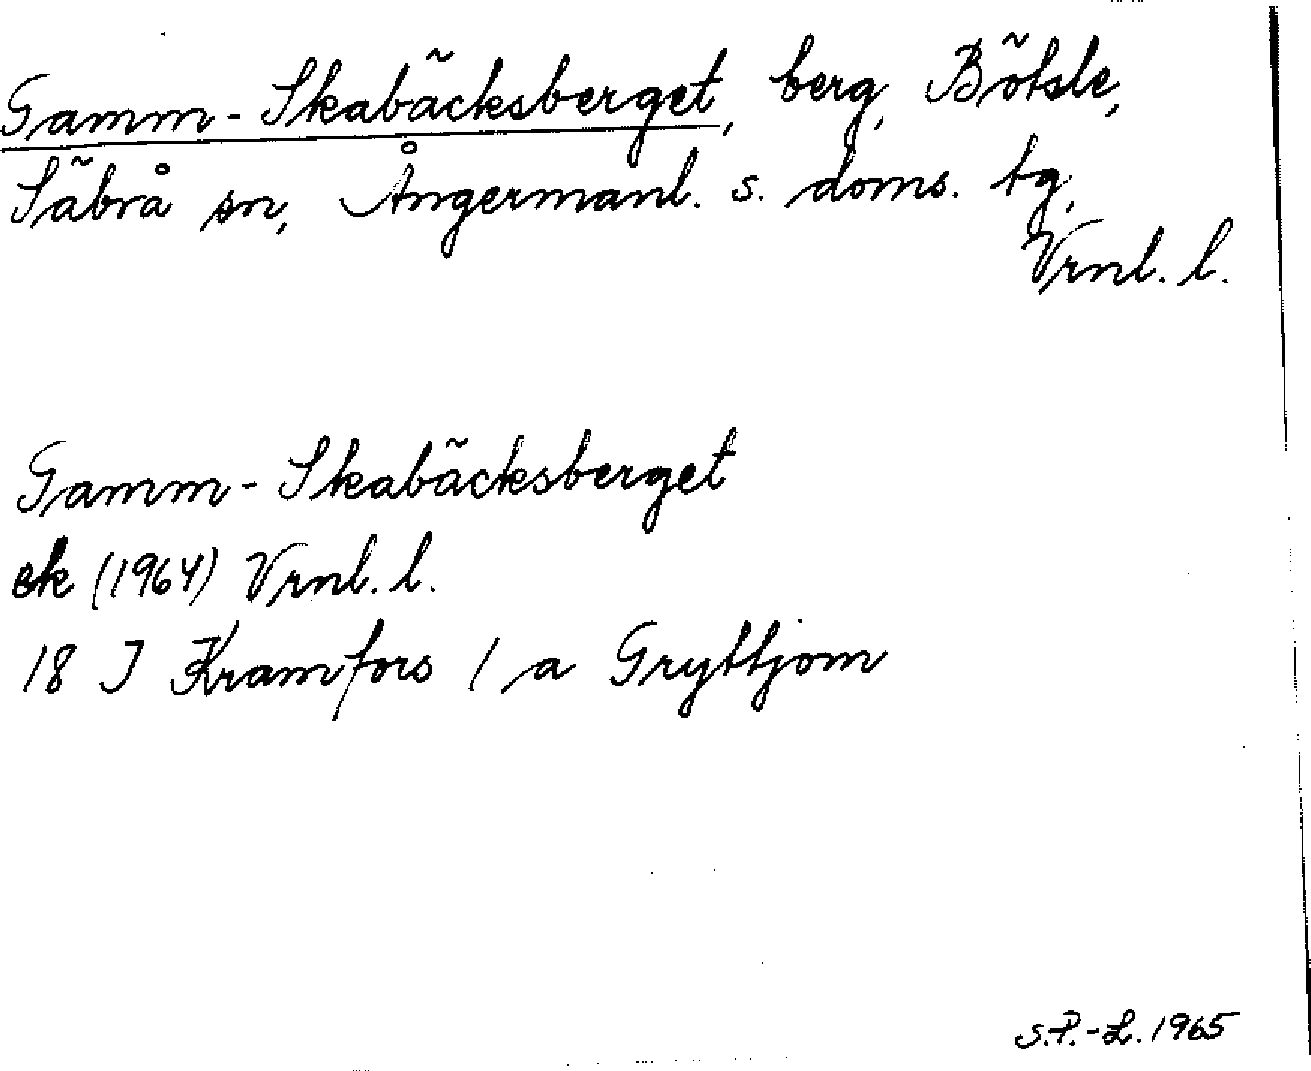 Gamm-Skabäcksberget, berg, Bötsle,
Säbrå sn, Ångermanl. s. doms. tg,
Vrnl. l.
Gamm-Skabäcksberget
ek (1964) Vrnl. l.
18 J Kramfors 1 a Gryttjom
S.P.-L. 1965